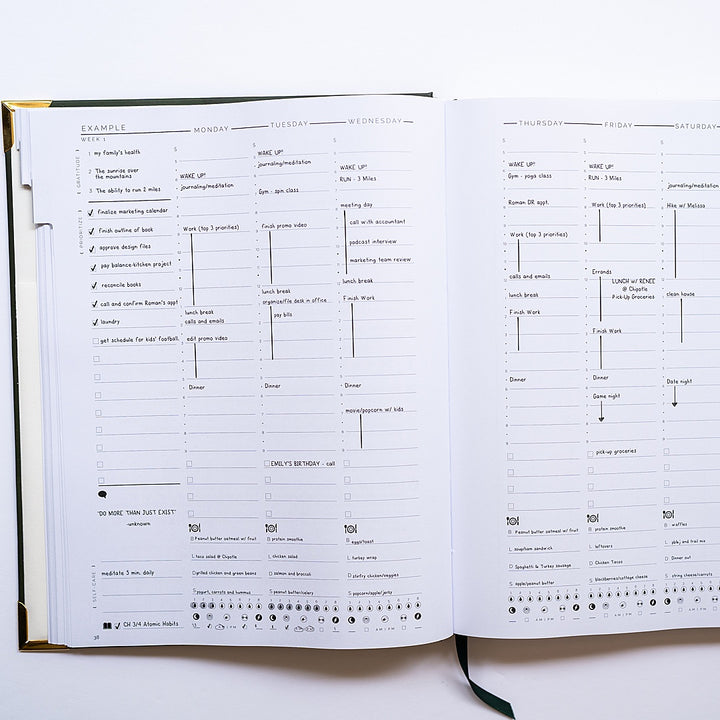 EXAMPLE
WEEK 1
GRATITUDE
1 my family's health
2 The sunrise over
the mountains
3 The ability to run 2 miles
PRIORITIZE
finalize marketing calendar
finish outline of book
approve design files
pay balance-kitchen project
reconcile books
call and confirm Roman's appt
laundry
get schedule for kids' football
"DO MORE THAN JUST EXIST"
-unknown
SELF-CARE
meditate 3 min. daily
CH 3/4 Atomic Habits
38
MONDAY
5
WAKE UP!
journaling/meditation
Work (top 3 priorities)
lunch break
calls and emails
edit promo video
Dinner
B Peanut butter oatmeal w/ fruit
L taco salad @ Chipotle
D grilled chicken and green beans
S yogurt, carrots and hummus
TUESDAY
5
WAKE UP!
journaling/meditation
Gym - spin class
finish promo video
lunch break
organize/file desk in office
pay bills
Dinner
EMILY'S BIRTHDAY - call
B protein smoothie
L chicken salad
D salmon and broccoli
S peanut butter/celery
WEDNESDAY
5
WAKE UP!
RUN - 3 Miles
meeting day
call with accountant
podcast interview
marketing team review
lunch break
Finish Work
Dinner
movie/popcorn w/ kids
B eggs/toast
L turkey wrap
D stirfry chicken/veggies
S popcorn/apple/jerky
THURSDAY
5
WAKE UP!
Gym - yoga class
Roman DR. appt.
Work (top 3 priorities)
calls and emails
lunch break
Finish Work
Dinner
B Peanut butter oatmeal w/ fruit
L soup/ham sandwich
D Spaghetti & Turkey sausage
S apple/peanut butter
FRIDAY
5
WAKE UP!
RUN - 3 Miles
Work (top 3 priorities)
Errands
LUNCH w/ RENEE
@ Chipotle
Pick-Up Groceries
Finish Work
Dinner
Game night
pick-up groceries
B protein smoothie
L leftovers
D Chicken Tacos
S blackberries/cottage cheese
SATURDAY
5
journaling/meditation
Hike w/ Melissa
clean house
Date night
B waffles
L pb&j and trail mix
D Dinner out
S string cheese/carrots